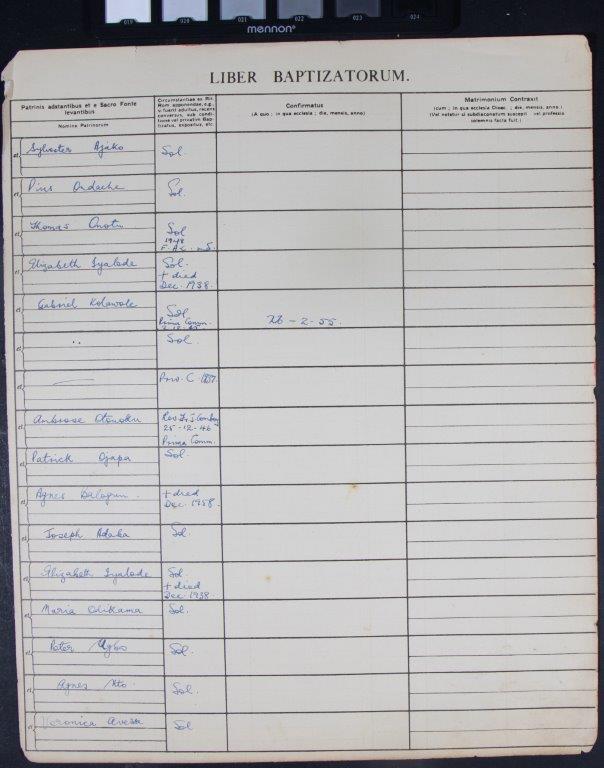 019 020 021 022 023 024
mennon®
LIBER BAPTIZATORUM.
Patrinis adstantibus et e Sacro Fonte
levantibus
Nomina Patrinorum
Circumstantiae ex Rit.
Rom. apponendae, e.g.,
si fuerit adultus, recens
conversus, sub condi-
tione vel privatim Bap-
tizatus, expositus, etc.
Confirmatus
(A quo; in qua ecclesia; die, mensis, anno)
Matrimonium Contraxit
(cum; in qua ecclesia Dioec.; die, mensis, anno.)
(Vel notatur si subdiaconatum suscepit vel professio
solemnis facta fuit.)
Sylvester Ajako Sol.
Pius Sol.
Thomas Onotu Sol
1948
Elizabeth Iyalode Sol.
+ died
Dec. 1938.
Gabriel Kolawole Sol
Prima Comm.
26-2-55.
" Sol.
Priv. C.
Ambrose Otonoku Rev Fr J.
25-12-46
Prima Comm.
Patrick Ojapa Sol.
Agnes Balogun. + died
Dec. 1958.
Joseph Adaba Sol.
Elizabeth Iyalode Sol.
+ died
Dec. 1938
Maria Odikama Sol.
Peter Ugbo Sol.
Agnes Atto. Sol.
Veronica Sol